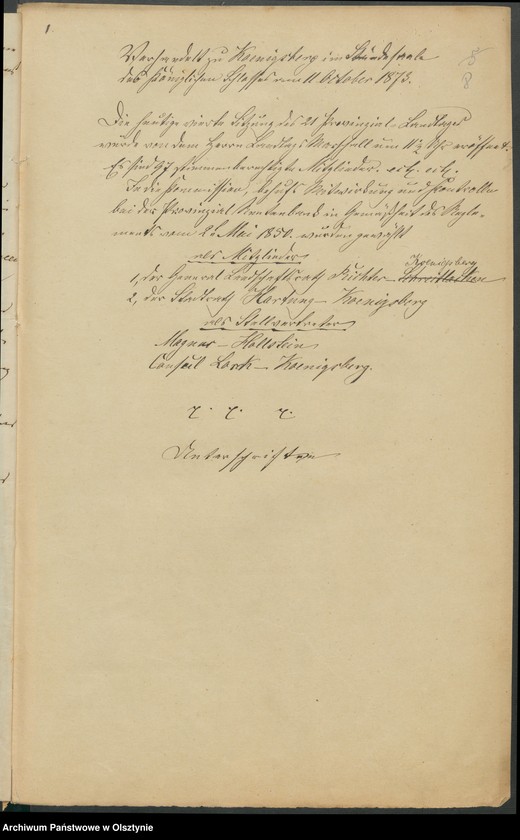 1.
5
8
Verhandelt zu Koenigsberg im Ständesaale
des Königlichen Schlosses am 11 October 1873.
Die heutige vierte Sitzung des 21 Provinzial-Landtages
wurde von dem Herrn Landtags Marschall um 11½ Uhr eröffnet.
Es sind 97 stimmenberechtigte Mitglieder. etc. etc.
In die Commission, behufs Mitwirkung und Kontrolle
bei der Provinzial Rentenbank in Gemäßheit des Regle-
ments vom 2 Mai 1850. wurden gewählt
als Mitglieder
Koenigsberg
1, der General Landschaftsrath Richter –
2, der Stadtrath Hartung – Koenigsberg
als Stellvertreter
Magnus – Hollstein
Consul Lork – Koenigsberg.
Unterschriften